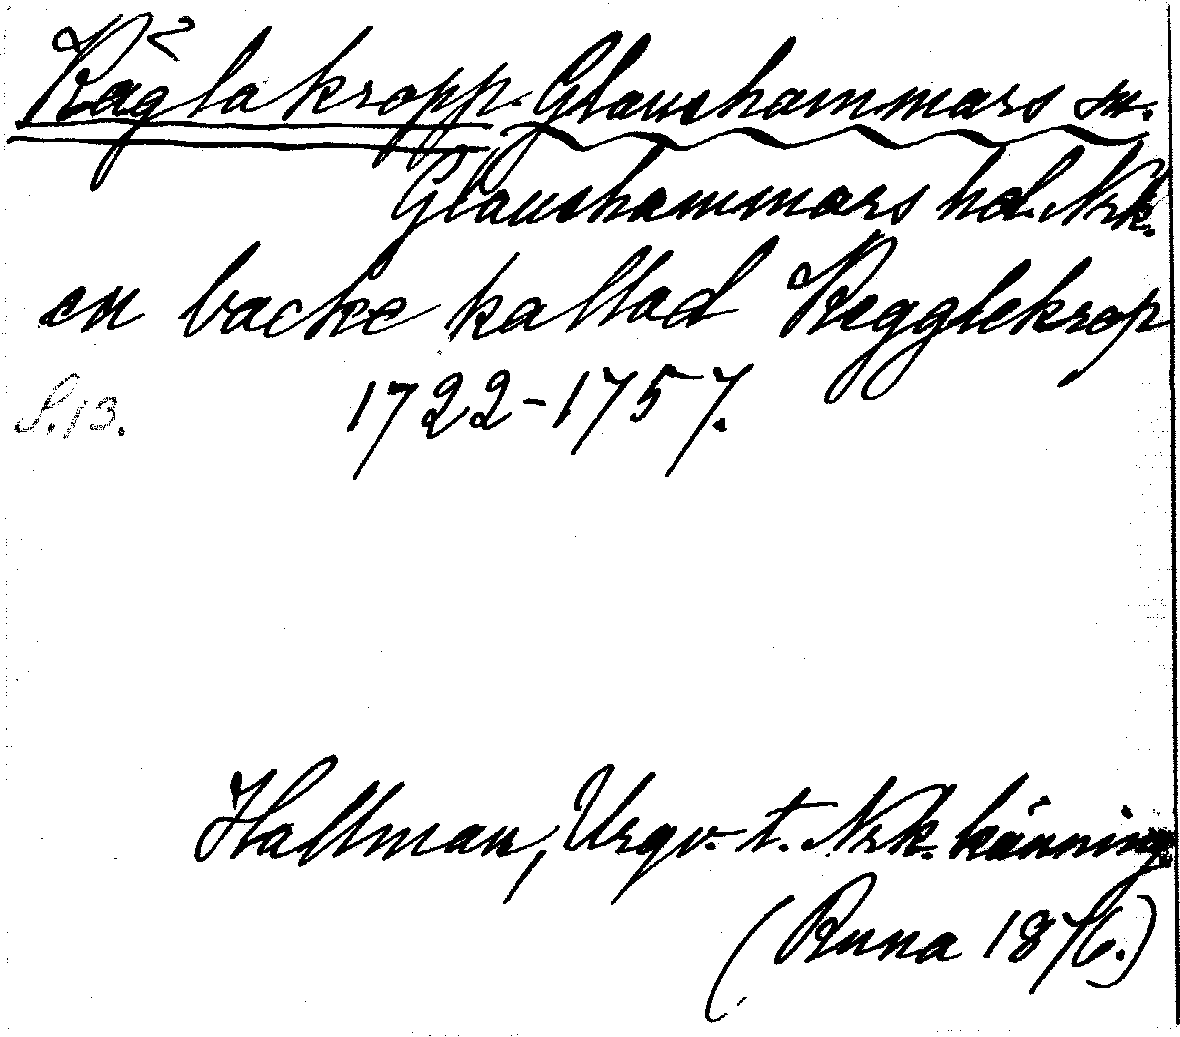 Räglakropp Glanshammars sn.
Glanshammars hd. Nrk.
en backe kallad Regglekrop
S. 13. 1722-1757.
Hallman, Urgv. t. Nrk. känning
(Runa 1876.)